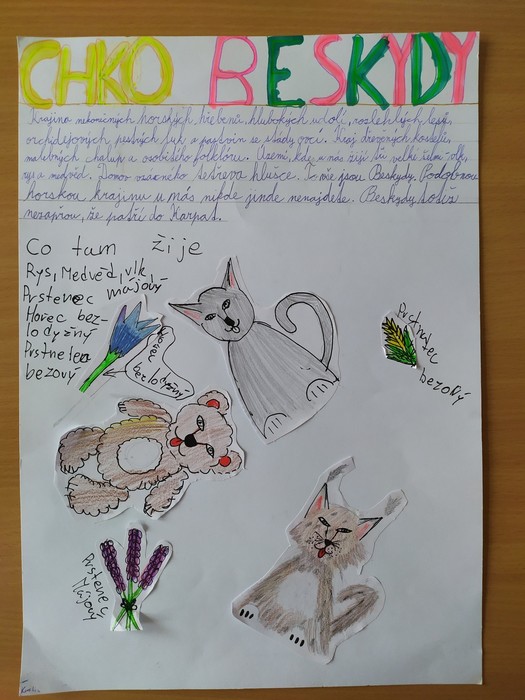 CHKO BESKYDY
Krajina nekonečných horských hřebenů, hlubokých údolí, rozlehlých lesů,
orchidejových pestrých luk a pastvin se stády ovcí. Kraj dřevěných kostelů,
malebných chalup a osobitého folkloru. Území, kde u nás žijí tři velké šelmy: vlk,
rys a medvěd. Domov vzácného tetřeva hlušce. To vše jsou Beskydy. Podobnou
horskou krajinu u nás nikde jinde nenajdete. Beskydy totiž
nezapřou, že patří do Karpat.
Co tam žije
Rys, Medvěd, vlk
Prstenec májový
Hořec bez-
lodyžný
Prstnatec
bezový
Hořec
bezlodyžný
Prstnatec
bezový
Prstenec
Májový